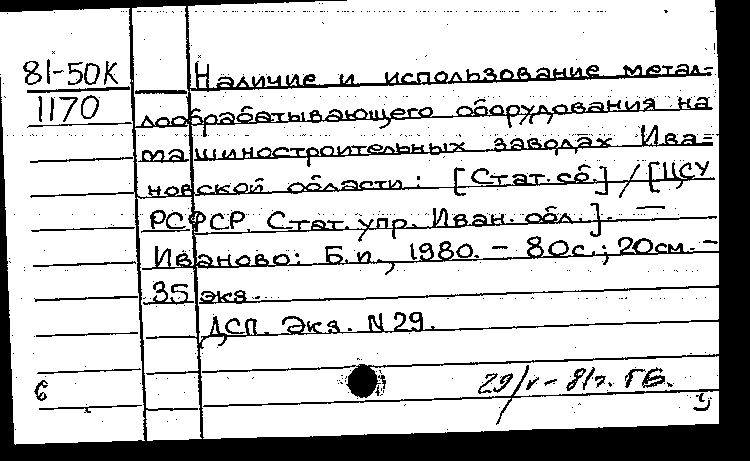 81-50К
1170
Наличие и использование метал-
лообрабатывающего оборудования на
машиностроительных заводах Ива-
новской области: [Стат. сб.] / [ЦСУ
РСФСР. Стат. упр. Иван. обл.]. —
Иваново: Б.п., 1980. - 80с.; 20см. -
35 экз.
ДСП. Экз. N 29.
6
29/V - 81г. ГБ.